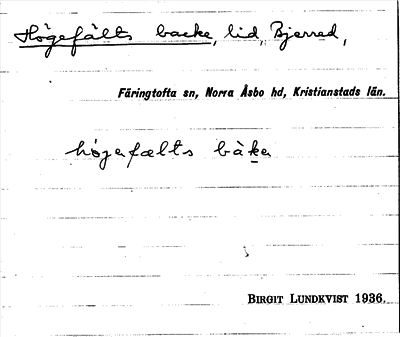 Högefälts backe, lid, Bjerred,
Färingtofta sn, Norra Åsbo hd, Kristianstads län.
høgefælts bàkɐ
BIRGIT LUNDKVIST 1936.